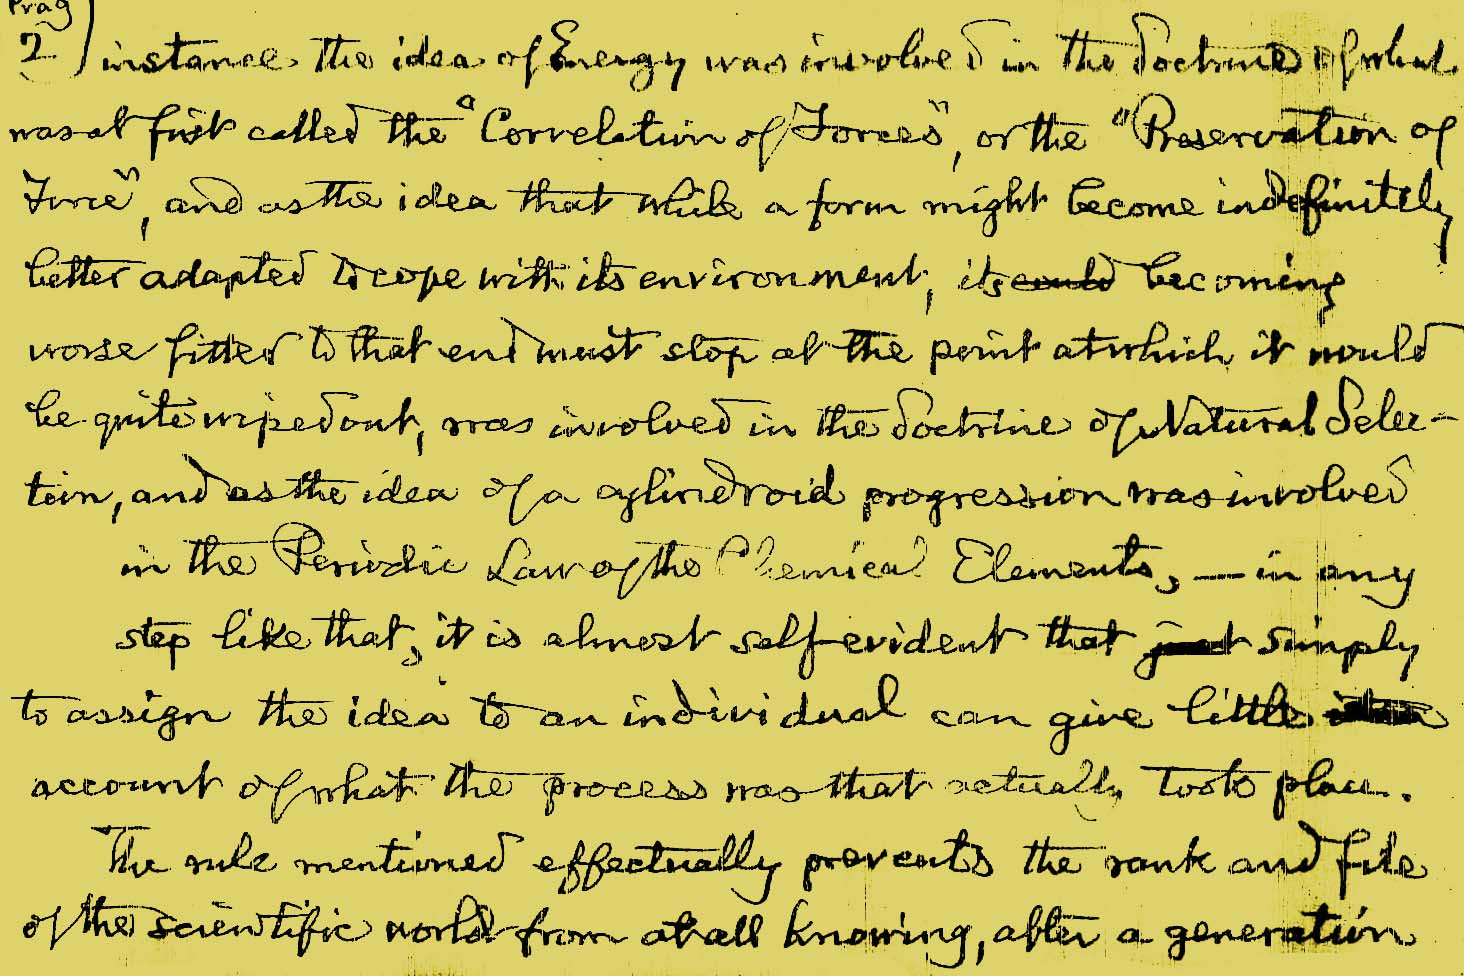 Prag
2
instance the idea of Energy was involved in the doctrine of what
was at first called the "Correlation of Forces", or the "Preservation of
Force", and as the idea that while a form might become indefinitely
better adapted to cope with its environment, its could becoming
worse fitted to that end must stop at the point at which it would
be quite wiped out, was involved in the doctrine of Natural Selec-
tion, and as the idea of a cylindroid progression was involved
in the Periodic Law of the Chemical Elements, — in any
step like that, it is almost self-evident that just simply
to assign the idea to an individual can give little
account of what the process was that actually took place.
The rule mentioned effectually prevents the rank and file
of the scientific world from at all knowing, after a generation